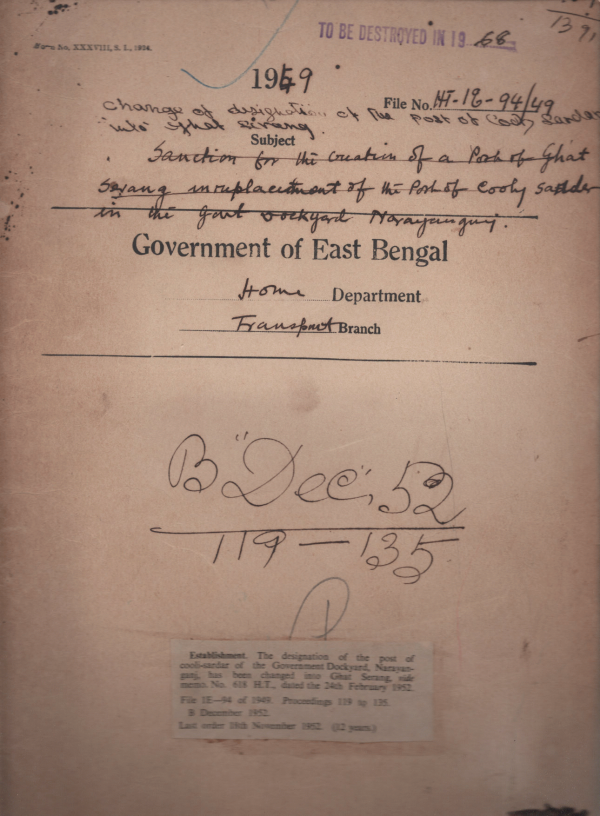 TO BE DESTROYED IN 19 68
13 91
No. XXXVIII, S. I., 1934.
1949
File No. HT-1E-94/49
Change of designation of the Post of Cooly Sardar
"into" Ghat Serang.
Subject
Sanction for the creation of a Post of Ghat
Serang in replacement of the Post of Cooly Sardar
in the Govt Dockyard Narayanganj.
Government of East Bengal
Home Department
Transport Branch
B "Dec", 52
119 — 135
Establishment. The designation of the post of
cooli-sardar of the Government Dockyard, Narayan-
ganj, has been changed into Ghat Serang, vide
memo. No. 618 H.T., dated the 24th February 1952.
File 1E—94 of 1949. Proceedings 119 to 135.
B December 1952.
Last order 18th November 1952. (12 years.)